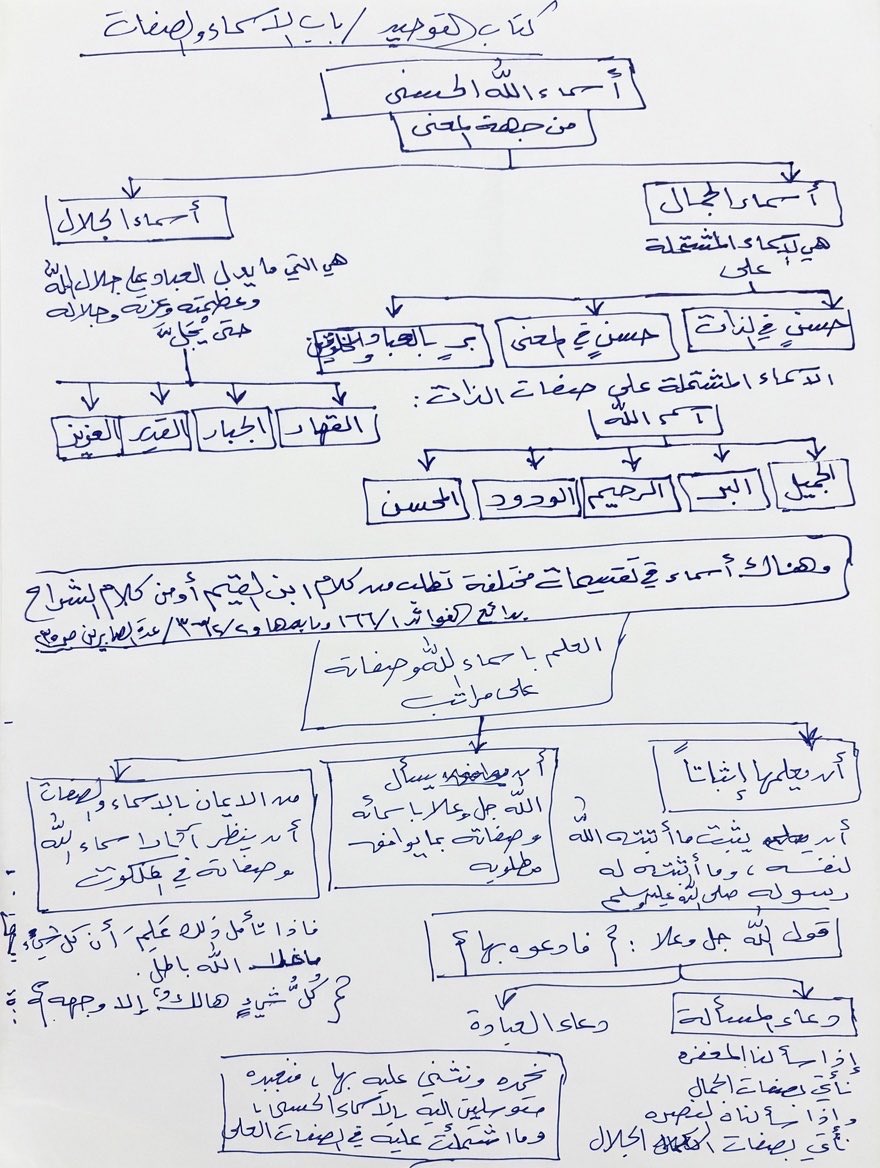 كتاب التوحيد / باب الأسماء والصفات
أسماء الله الحسنى
من جهة المعنى
أسماء الجمال
أسماء الجلال
هي الأسماء المشتملة
على
حسنٍ في الذات
حسنٍ في المعنى
برٍ بالعباد والمخلوقين
هي التي ما يدل العباد على جلال الله
وعظمته وعزته وجلاله
حتى يُجَلَّ
القهار
الجبار
القدير
العزيز
الأسماء المشتملة على صفات الذات:
اسم الله
الجميل
البر
الرحيم
الودود
المحسن
وهناك أسماء في تقسيمات مختلفة تطلب من كلام ابن القيم أو من كلام الشراح
بدائع الفوائد ١/١٦٦ وما بعدها و / عدة الصابرين ص
العلم بأسماء الله وصفاته
على مراتب
أن يعلمها إثباتاً
أن يسأل
الله جل وعلا بأسمائه
وصفاته بما يوافق
مطلوبه
من الإيمان بالأسماء والصفات
أن ينظر آثار أسماء الله
وصفاته في الملكوت
أن يثبت ما أثبته الله
لنفسه، وما أثبته له
رسوله صلى الله عليه وسلم
فإذا تأمل ذلك عَلِمَ أن كل شيء
ما خلا الله باطل.
{كُلُّ شيءٍ هالكٌ إلا وجهه}
قول الله جل وعلا: {فادعوه بها}
دعاء المسألة
دعاء العبادة
إذا سألنا المغفرة
نأتي بصفات الجمال
وإذا سألناه لنصره
نأتي بصفات الجلال
نحمده ونثني عليه بها، فنعبده
متوسلين إليه بالأسماء الحسنى،
وما اشتملت عليه في الصفات العلى